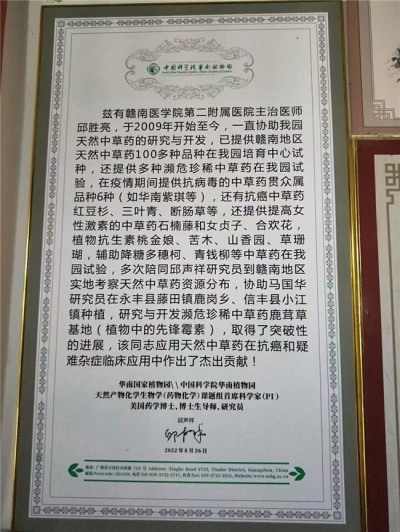 中国科学院华南植物园
兹有赣南医学院第二附属医院主治医师
邱胜亮，于2009年开始至今，一直协助我园
天然中草药的研究与开发，已提供赣南地区
天然中草药100多种品种在我园培育中心试
种，还提供多种濒危珍稀中草药在我园试
验，在疫情期间提供抗病毒的中草药贯众属
品种6种（如华南紫琪等），还有抗癌中草药
红豆杉、三叶青、断肠草等，还提供提高女
性激素的中草药石楠藤和女贞子、合欢花，
植物抗生素桃金娘、苦木、山香园、草珊
瑚，辅助降糖多穗柯、青钱柳等中草药在我
园试验，多次陪同邱声祥研究员到赣南地区
实地考察天然中草药资源分布，协助马国华
研究员在永丰县藤田镇鹿岗乡、信丰县小江
镇种植，研究与开发濒危珍稀中草药鹿茸草
基地（植物中的先锋霉素），取得了突破性
的进展，该同志应用天然中草药在抗癌和疑
难杂症临床应用中作出了杰出贡献！
华南国家植物园\\中国科学院华南植物园
天然产物化学生物学（药物化学）课题组首席科学家（PI）
美国药学博士，博士生导师，研究员
邱声祥
2022年8月26日